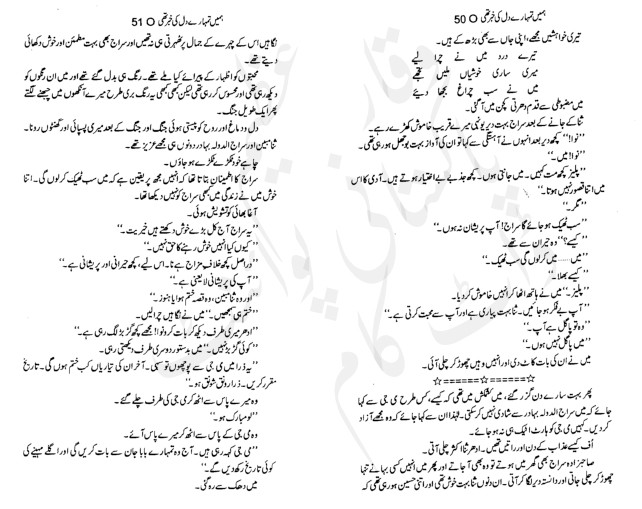 ہمیں تمہارے دل کی خبر تھی O 50
تیری خواہشیں مجھے، اپنی جاں سے بھی بڑھ کے ہیں۔
تیرے درد میں نے چرا لیے
میری ساری خوشیاں ملیں تجھے
میں نے سب چراغ بجھا دیئے
میں مضبوطی سے قدم دھرتی کچن میں آ گئی۔
ثنا کے جانے کے بعد سراج بہت دیر یونہی میرے قریب خاموش کھڑے رہے۔
’’نوا!‘‘ کچھ دیر بعد انہوں نے آہستگی سے کہا تو ان کی آواز بہت بوجھل ہو رہی تھی۔
’’نوا! میں۔‘‘
’’پلیز کچھ مت کہیں۔ میں جانتی ہوں۔ کچھ جذبے بے اختیار ہوتے ہیں۔ آدمی کا اس
میں اتنا قصور نہیں ہوتا۔‘‘
’’مگر۔‘‘
’’سب ٹھیک ہو جائے گا سراج! آپ پریشان نہ ہوں۔‘‘
’’کیسے؟‘‘ وہ حیران سے تھے۔
’’میں ...... میں کر لوں گی سب ٹھیک۔‘‘
’’کیسے بھلا۔‘‘
’’پلیز۔‘‘ میں نے ہاتھ اٹھا کر انہیں خاموش کر دیا۔
’’آپ بے فکر ہو جائیں۔ ثنا بہت پیاری ہے اور آپ سے محبت کرتی ہے۔‘‘
’’وہ تو پاگل ہے آپ۔‘‘
’’میں پاگل نہیں ہوں۔‘‘
میں نے ان کی بات کاٹ دی اور انہیں وہیں چھوڑ کر چلی آئی۔
☆======☆======☆
پھر بہت سارے دن گزر گئے، میں کشمکش میں تھی کہ کیسے، کس طرح می جی سے کہا
جائے کہ میں سراج الدولہ بہادر سے شادی نہیں کر سکتی۔ لہٰذا ان سے کہا جائے کہ وہ مجھے آزاد
کر دیں۔ کہیں می جی کو ہارٹ اٹیک ہی نہ ہو جائے۔
اُف کیسے عذاب کے دن اور راتیں تھیں۔ ادھر ثنا اکثر چلی آتی۔
صاحبزادہ سراج بھی گھر میں ہوتے تو وہ بھی آ جاتے اور پھر میں انہیں کسی بہانے تنہا
چھوڑ کر چلی جاتی اور دانستہ دیر لگا کر آتی۔ ان دنوں ثنا بہت خوش تھی اور اتنی حسین ہو رہی تھی کہ
ہمیں تمہارے دل کی خبر تھی O 51
نگاہیں اس کے چہرے کے جمال پر ٹھہرتی ہی نہ تھیں اور سراج بھی بہت مطمئن اور خوش دکھائی
دیتے تھے۔
محبتوں کو اظہار کے پیرائے کیا ملے تھے۔ رنگ ہی بدل گئے تھے اور میں ان رنگوں کو
دیکھ رہی تھی اور محسوس کر رہی تھی لیکن کبھی کبھی یہ رنگ بری طرح میرے آنکھوں میں چبھنے لگتے
پھر ایک طویل جنگ۔
دل و دماغ اور روح کو جیتی ہوئی جنگ اور جنگ کے بعد میری پسپائی اور گھنٹوں رونا۔
ثنا مبین اور سراج الدولہ بہادر دونوں ہی مجھے عزیز تھے۔
چاہے خود ٹکڑے ٹکڑے ہو جاؤں۔
سراج کا اطمینان بتاتا تھا کہ انہیں مجھ پر یقین ہے کہ میں سب ٹھیک کر لوں گی۔ اتنا
خوش میں نے زندگی میں کبھی سراج کو نہیں دیکھا تھا۔
آغا بھائی کو تشویش ہوئی۔
’’یہ سراج آج کل بڑے خوش دکھتے ہیں خیریت۔‘‘
’’کیوں کیا انہیں خوش رہنے کا حق نہیں۔‘‘
’’دراصل کچھ خلافِ مزاج ہے نا۔ اس لیے، کچھ حیرانی اور پریشانی ہے۔‘‘
’’آپ کی پریشانی لایعنی ہے۔‘‘
’’اور وہ ثنا مبین، وہ قصہ ختم ہوا یا ہنوز۔‘‘
’’ختم ہی سمجھیں۔‘‘ میں نے نگاہیں چرا لیں۔
’’ادھر میری طرف دیکھ کر بات کرو نوا! مجھے کچھ گڑبڑ لگ رہی ہے۔‘‘
’’کوئی گڑبڑ نہیں۔‘‘ میں بدستور دوسری طرف دیکھتی رہی۔
’’یہ ذرا میں می جی سے پوچھوں تو سہی۔ آخر ان کی تیاریاں کب ختم ہوں گی۔ تاریخ
مقرر کریں۔ ذرا رونق شونق ہو۔‘‘
وہ میرے پاس سے اٹھ کر می جی کی طرف چلے گئے۔
’’لو مبارک ہو۔‘‘
وہ می جی کے پاس سے اٹھ کر میرے پاس آئے۔
’’می جی کہہ رہی ہیں۔ آج وہ تمہارے بابا جان سے بات کریں گی اور اگلے مہینے کی
کوئی تاریخ رکھ دیں گے۔‘‘
میں دھک سے رہ گئی۔